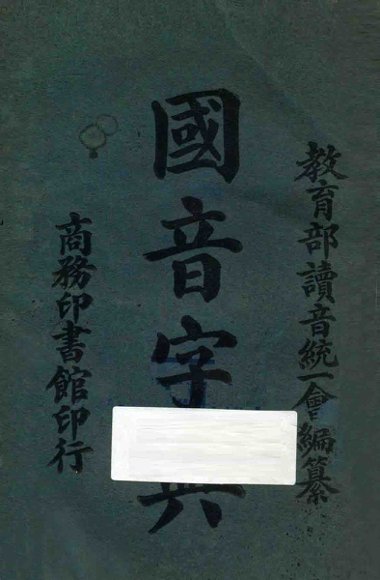 教育部讀音統一會編纂
國音字典
商務印書館印行